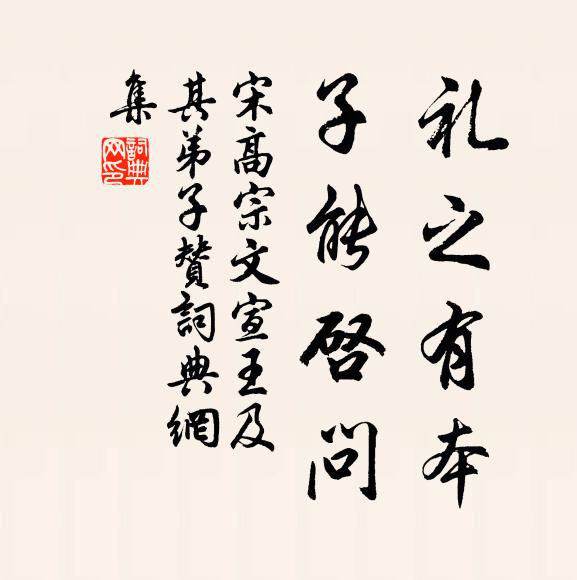 礼之有本
子能启问
宋高宗文宣王及
其弟子贊詞典網
集
詞典
网印